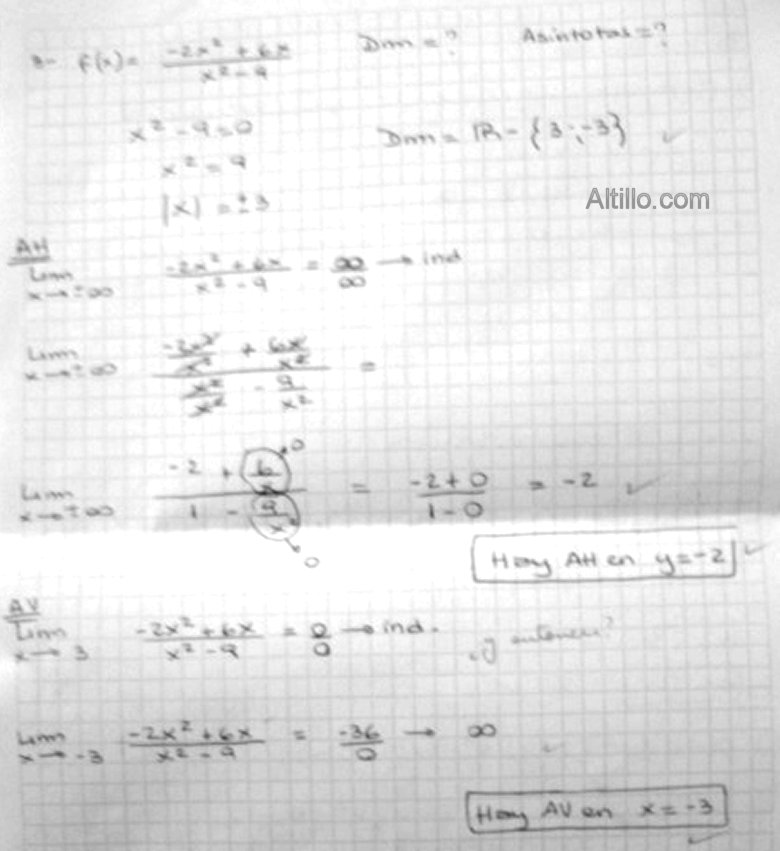 3- f(x)= (-2x² + 6x)/(x² - 9) Dom = ? Asintotas = ?
x² - 9 = 0 Dom = ℝ - {3 ; -3} ✓
x² = 9
Altillo.com
|x| = ± 3
AH
Lim x→±∞ (-2x² + 6x)/(x² - 9) = ∞/∞ → ind
Lim x→±∞ (-2x²/x² + 6x/x²)/(x²/x² - 9/x²) =
Lim x→±∞ (-2 + 6/x → 0)/(1 - 9/x² → 0) = (-2 + 0)/(1 - 0) = -2 ✓
Hay AH en y = -2 ✓
AV
Lim x→3 (-2x² + 6x)/(x² - 9) = 0/0 → ind. ¿y entonces?
Lim x→-3 (-2x² + 6x)/(x² - 9) = -36/0 → ∞ ✓
Hay AV en x = -3 ✓